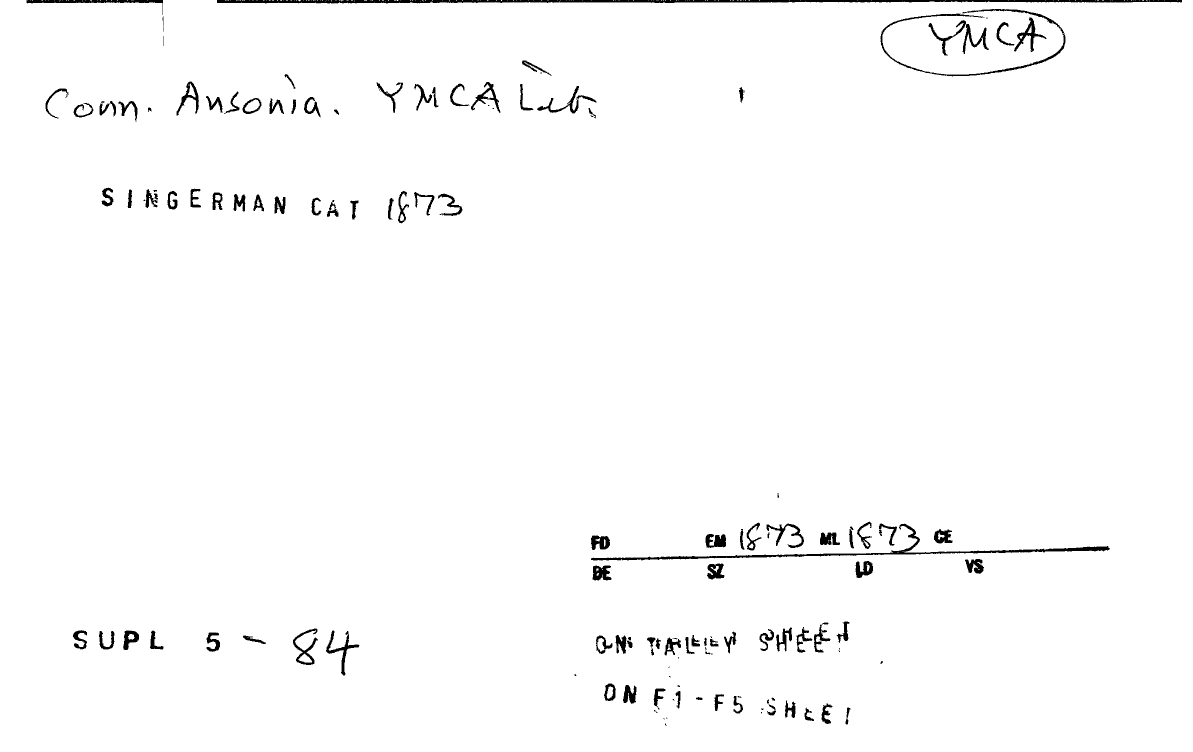 YMCA
Conn. Ansonia. YMCA Lib.
SINGERMAN CAT 1873
FD EM 1873 ML 1873 CE
DE SZ LD VS
SUPL 5 - 84
ON TALLEY SHEET
ON F1-F5 SHEET